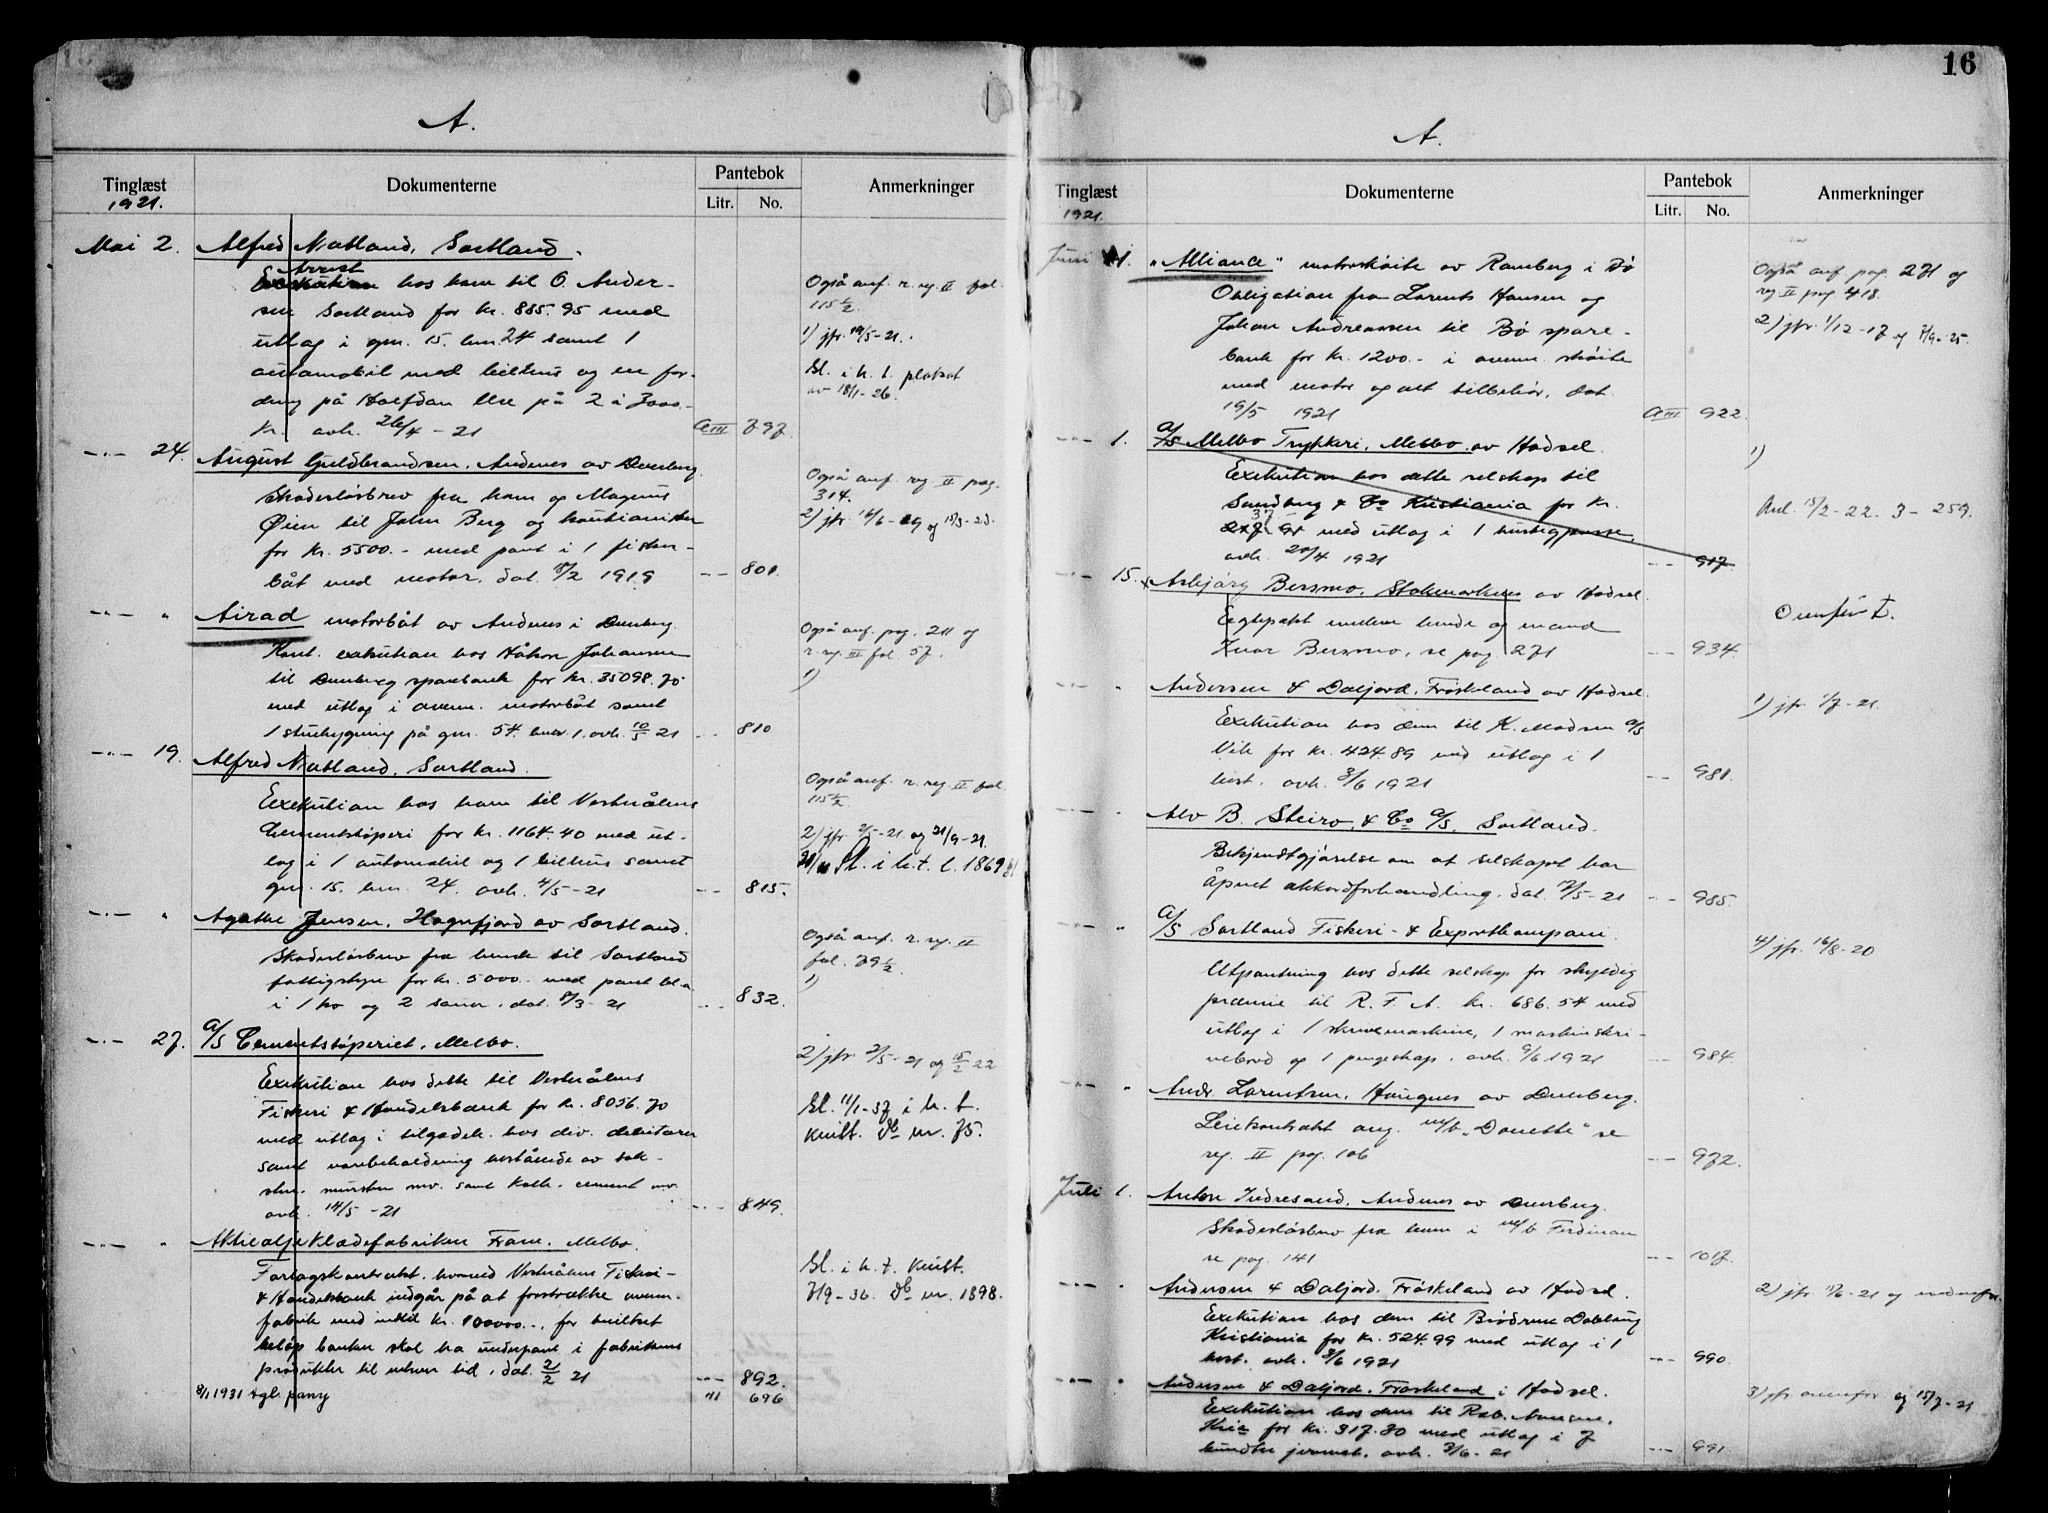 A.
Tinglæst
1921.
Dokumenterne
Pantebok
Litr. No.
Anmerkninger
Mai 2. Alfred Natland, Sortland.
Arrest
Exekution hos ham til O. Ander-
sen Sortland for kr. 885.95 med
utlæg i gnr. 15. bnr. 24 samt 1
automobil med bilhus og en for-
dring på Halfdan på 2 à 3000.-
kr. avh. 26/4 - 21 A III 797.
Også anf. r. reg. II fol.
115 1/2.
1) jfr. 19/5-21.
Sl. i h. t. plakat
av 18/1-26.
-"- 24. August Guldbrandsen, Andenes av Dverberg.
Skadesløsbrev fra ham og Magnus
Øien til John Berg og kautionister
for kr. 5500.- med pant i 1 fisker-
båt med motor, dat. 18/2 1919 -"- 801.
Også anf. reg. II pag.
314.
2) jfr. 16/6-19 og 15/3-23.
-"- " Airad motorbåt av Andenes i Dverberg.
Kont. exekution hos Håkon Johansen
til Dverberg sparebank for kr. 35098.70
med utlæg i ovenn. motorbåt samt
1 stuebygning på gnr. 54. bnr. 1. avh. 10/5 21 -"- 810
Også anf. pag. 211 og
r. reg. III fol. 57.
1)
-"- 19. Alfred Natland, Sortland.
Exekution hos ham til Vesterålens
Cementstøperi for kr. 1164.40 med ut-
læg i 1 automobil og 1 bilhus samt
gnr. 15. bnr. 24. avh. 4/5-21 -"- 815.
Også anf. r. reg. II fol.
115 1/2.
2) jfr 2/5-21 og 21/9-21.
Sl. i h. t. l. 1869
-"- " Agathe Jensen, Hognfjord av Sortland.
Skadesløsbrev fra hende til Sortland
fattigstyre for kr. 5000.- med pant bl.a
i 1 ko og 2 sauer, dat. 8/3-21 -"- 832.
Også anf. r. reg. II
fol. 79 1/2.
1)
-"- 27. A/S Cementstøperiet, Melbo.
Exekution hos dette til Vesterålens
Fiskeri & Handelsbank for kr. 8056.70
med utlæg i tilgodeh. hos div. debitorer
samt varebeholdning bestående av tak-
sten, mursten mv. samt kalk, cement mv.
avh. 14/5-21 -"- 849.
2) jfr 2/5-21 og 15/2 22
Sl. 11/1-37 i h. t.
kvitt. Db nr. 75.
-"- " Aktieolje klædefabriken Fram, Melbo.
Forlagskontrakt, hvorved Vesterålens Fiskeri-
& Handelsbank indgår på at forstrække ovenn.
fabrik med indtil kr. 100000.-, for hvilket
beløp banken skal ha underpant i fabrikens
produkter til enhver tid, dat. 21/2 21 -"- 892.
8/1 1931 tgl. påny 41 696
Sl. i h. t. kvitt.
7/9-36. Db nr. 1898.
16
A.
Tinglæst
1921.
Dokumenterne
Pantebok
Litr. No.
Anmerkninger
Juni 1. "Alliance" motorskøite av Ramberg i Bø
Obligation fra Lorents Hansen og
Johan Andreassen til Bø spare-
bank for kr. 1200.- i ovenn. skøite
med motor og alt tilbehør, dat.
19/5 1921 A III 922.
Også anf. pag. 271 og
reg II pag. 418.
2) jfr. 1/12-17 og 7/9-25.
-"- 1. A/S Melbo Trykkeri, Melbo av Hadsel.
Exekution hos dette selskap til
Sundberg & Co Kristiania for kr.
med utlæg i 1 hurtigpresse,
avh. 20/4 1921 -"- 917.
1)
Avl. 15/2-22. 3-259.
-"- 15. Asbjørg Bersmo, Stokmarknes av Hadsel.
Egtepakt mellem hende og mand
Ivar Bersmo, se pag. 271 -"- 934.
Overført.
-"- " Andersen & Daljord, Frøskeland av Hadsel.
Exekution hos dem til K. Madsen A/S
Vik for kr. 424.89 med utlæg i 1
hest. avh. 3/6 1921 -"- 981.
1) jfr. 1/7-21.
-"- " Alv B. Steiro & Co A/S, Sortland.
Bekjendtgjørelse om at selskapet har
åpnet akkordforhandling, dat. 12/5-21 -"- 985.
" A/S Sortland Fiskeri- & Exportkompani.
Utpantning hos dette selskap for skyldig
præmie til R. F. A. kr. 686.54 med
utlæg i 1 skrivemaskine, 1 maskinskri-
vebord og 1 pengeskap. avh. 9/6 1921 -"- 984.
4) jfr. 16/8-20
-"- " Andr. Lorentsen, Haugnes av Dverberg.
Leiekontrakt ang. m/b "Danette" se
reg. II pag. 106 -"- 972.
Juli 1. Anton Indresand, Andenes av Dverberg.
Skadesløsbrev fra ham i m/b Ferdinan
se pag. 141 -"- 1017.
-"- " Andersen & Daljord, Frøskeland av Hadsel.
Exekution hos dem til Brødrene Dobloug
Kristiania for kr. 524.99 med utlæg i 1
hest. avh. 3/6 1921 -"- 990.
2) jfr 15/6-21 og nedenfor.
-"- " Andersen & Daljord, Frøskeland i Hadsel.
Exekution hos dem til Rob.
Kria for kr. 317.80 med utlæg i 7
bundter jernnet. avh. 3/6-21 -"- 991
3) jfr. ovenfor og 15/7-21